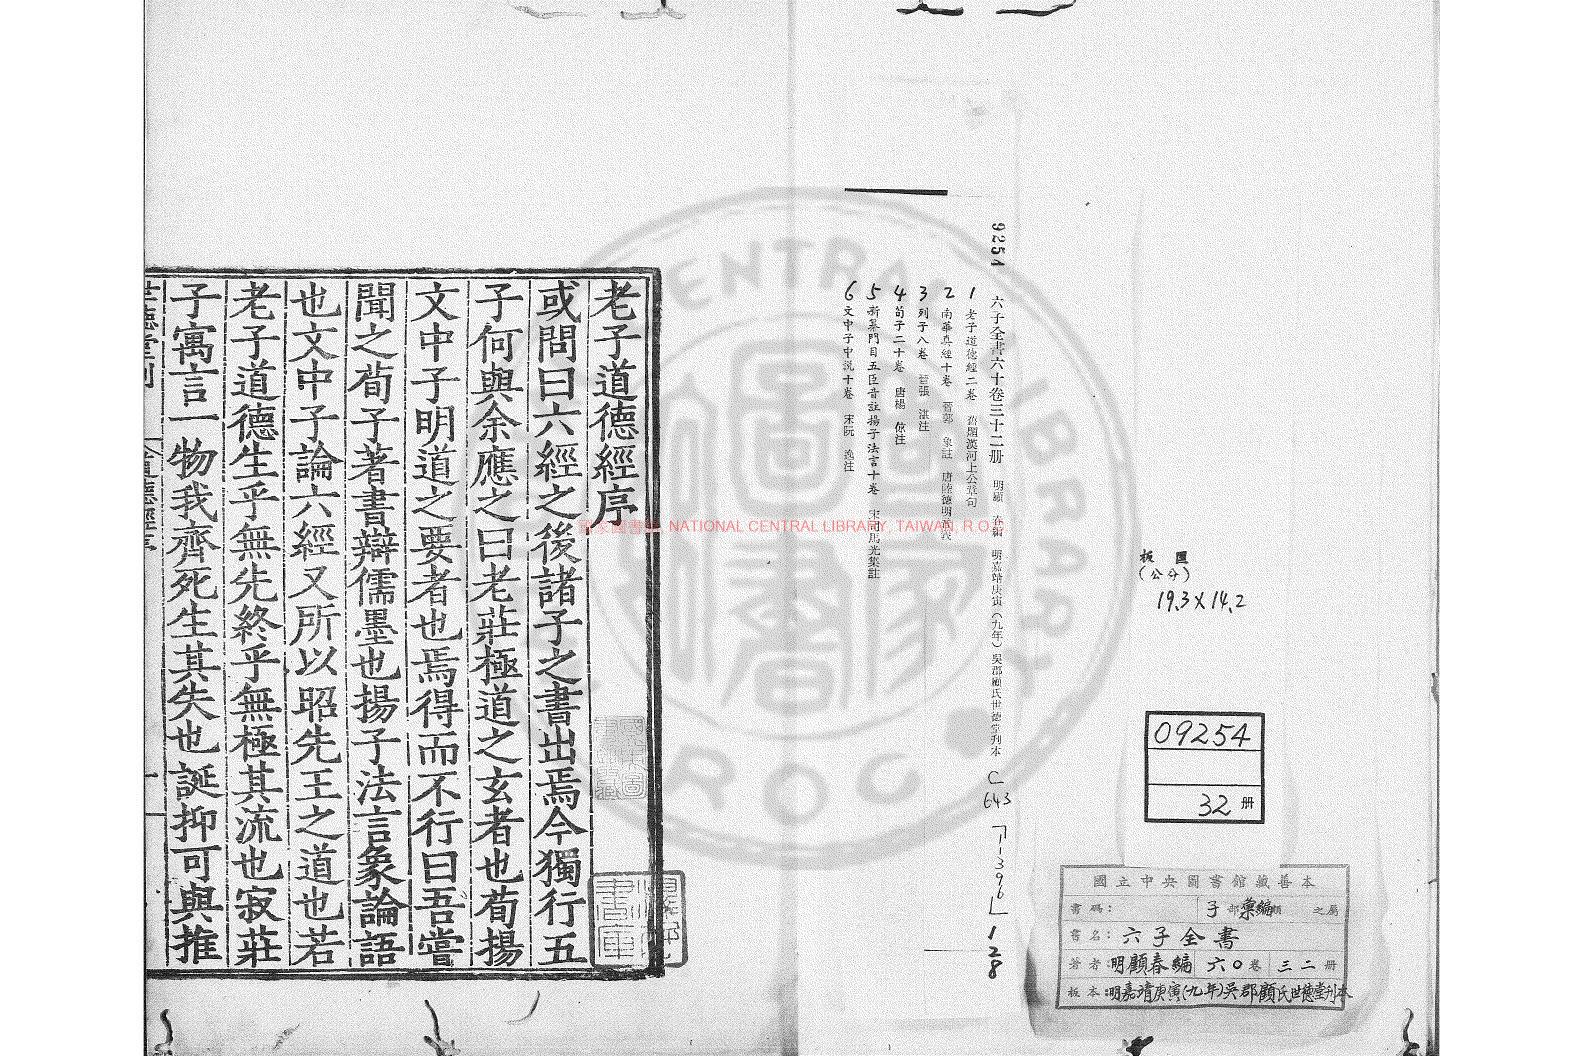 國立中央圖書館藏善本
書碼：　子部彙編類　之屬
書名：六子全書
著者：明顧春編　六〇卷　三二册
板本：明嘉靖庚寅(九年)吳郡顧氏世德堂刋本
09254
32 册
板匡
(公分)
19.3 X 14.2
9254　六子全書六十卷三十二册　明顧　春編　明嘉靖庚寅（九年）吳郡顧氏世德堂刋本　C 643　128
1 老子道德經二卷　舊題漢河上公章句
2 南華真經十卷　晉郭　象註　唐陸德明音義
3 列子八卷　晉張　湛注
4 荀子二十卷　唐楊　倞注
5 新纂門目五臣音註揚子法言十卷　宋司馬光集註
6 文中子中説十卷　宋阮　逸注
CENTRAL LIBRARY
ROC
國家圖書館, NATIONAL CENTRAL LIBRARY, TAIWAN, R.O.C
老子道德經序
或問曰六經之後諸子之書出焉今獨行五
子何與余應之曰老莊極道之玄者也荀揚
文中子明道之要者也焉得而不行曰吾嘗
聞之荀子著書辯儒墨也揚子法言象論語
也文中子論六經又所以昭先王之道也若
老子道德生乎無先終乎無極其流也寂莊
子寓言一物我齊死生其失也誕抑可與推